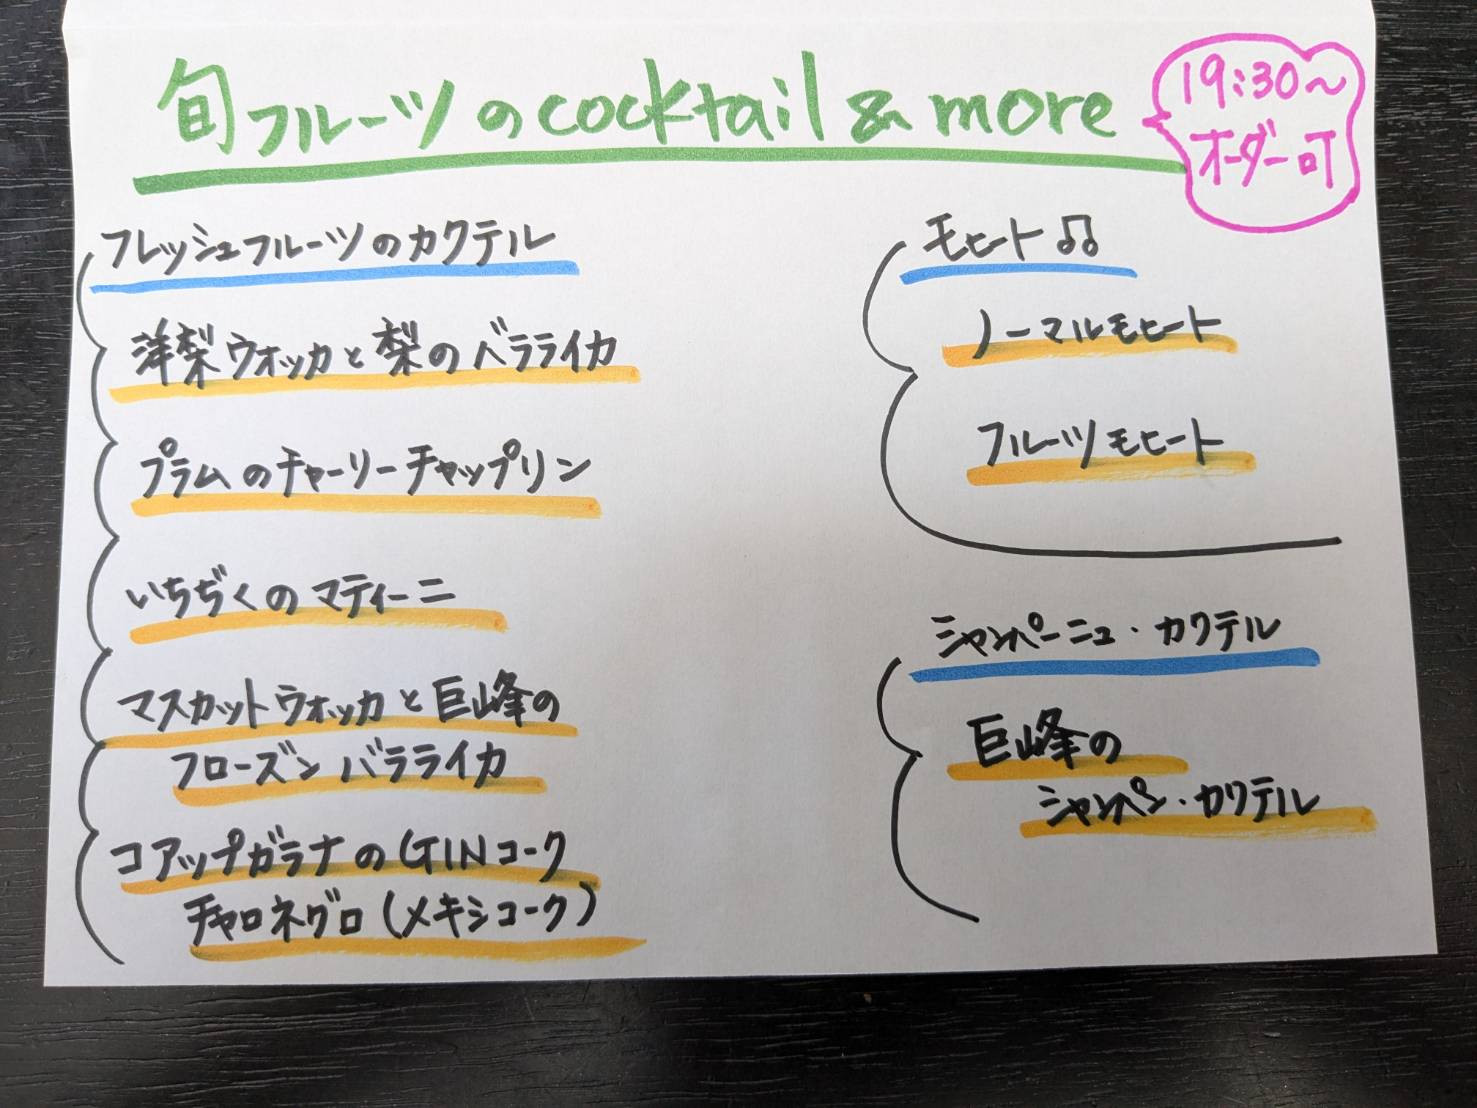 旬フルーツのcocktail & more
19:30～
オーダー可
フレッシュフルーツのカクテル
洋梨ウオッカと梨のバラライカ
プラムのチャーリーチャップリン
いちぢくのマティーニ
マスカットウォッカと巨峰の
フローズンバラライカ
コアップガラナのGINコーク
チャロネグロ(メキシコーク)
モヒート♫
ノーマルモヒート
フルーツモヒート
シャンパーニュ・カクテル
巨峰の
シャンペン・カクテル